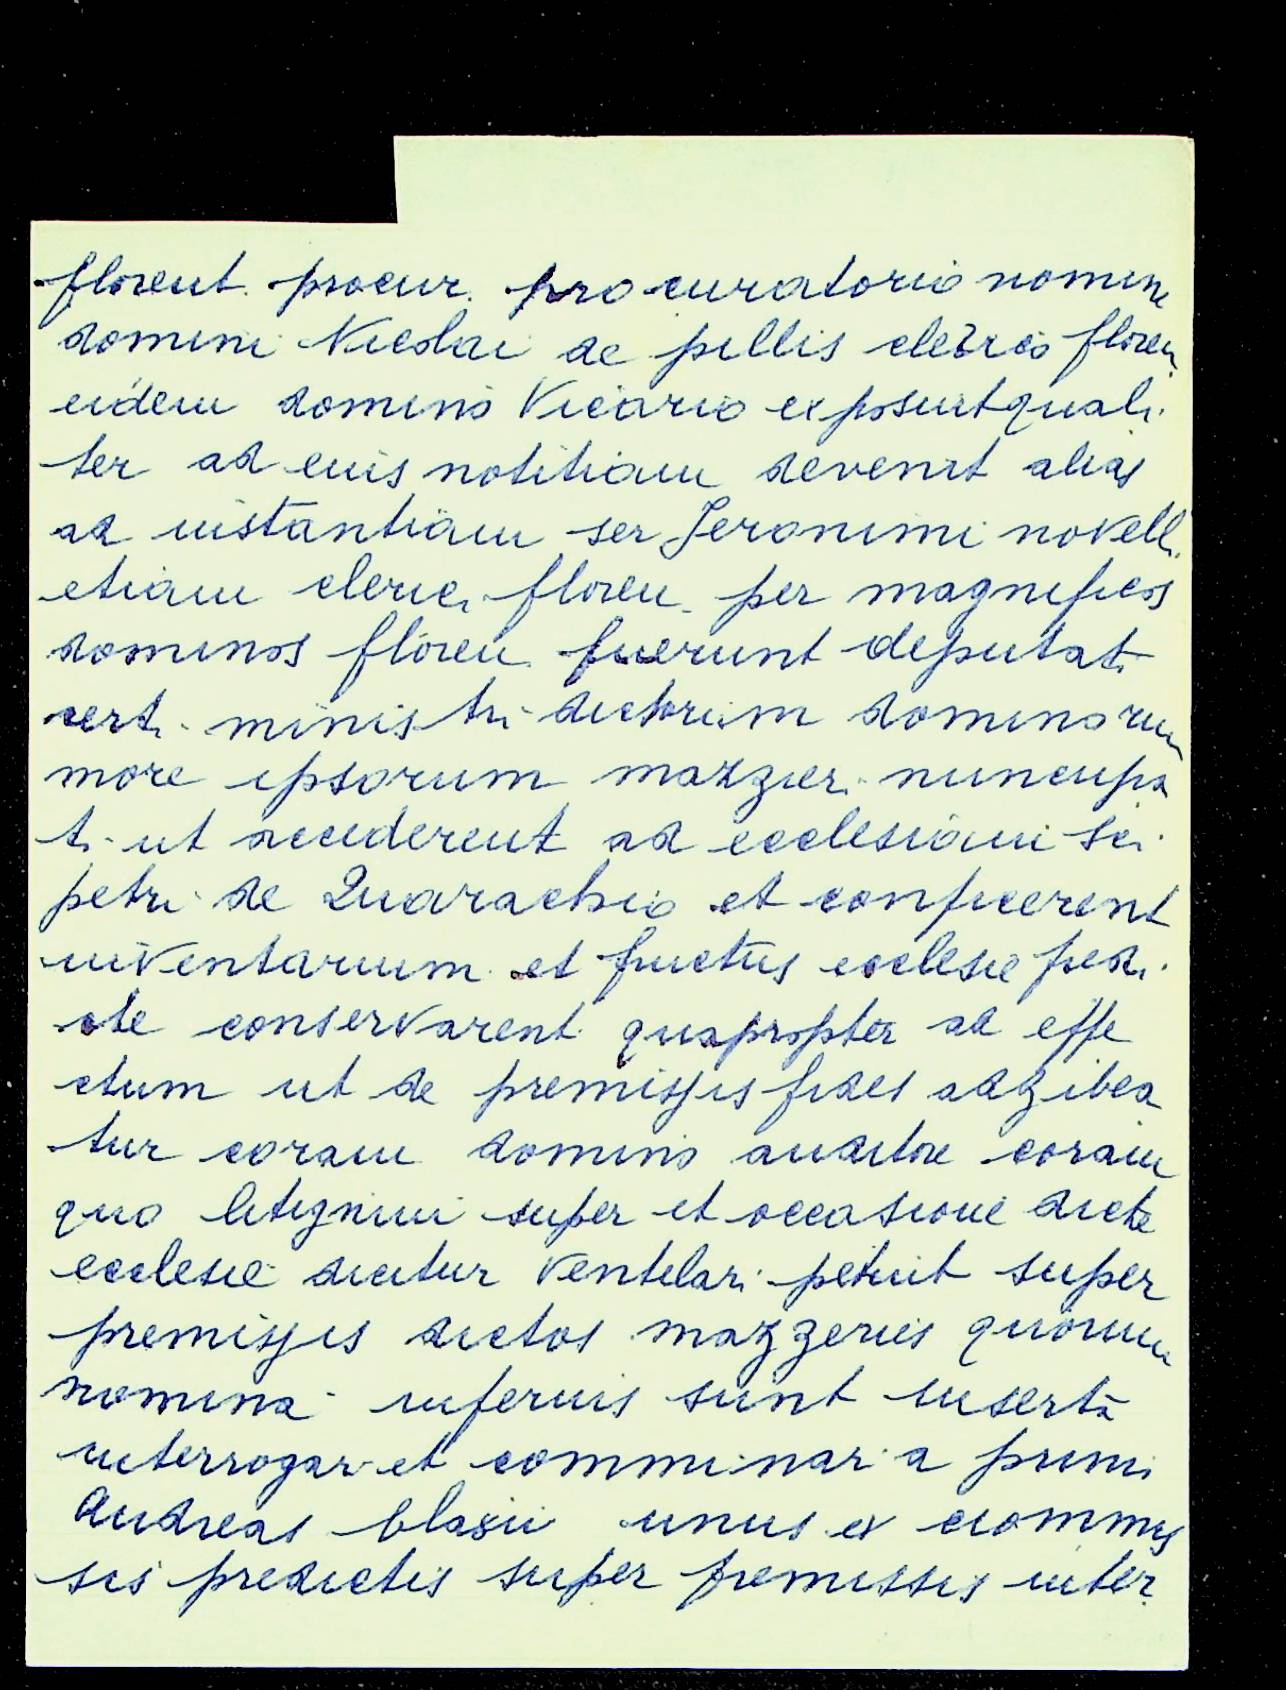 florent. procur. procuratorio nomine
domini Nicolai de pillis clerico floren.
eidem domino Vicario exposuit quali
ter ad euis notitiam devenit alias
ad instantiam ser Jeronimi novelli
etiam clerici floren. per magnificos
dominos floren. fuerunt deputati
certi ministri dictorum dominorum
more ipsorum mazzieri nuncupa
ti ut accederent ad ecclesiam sci.
petri de Quarachio et conficerent
inventarium et fructus ecclesie pred.
cte conservarent quapropter ad effe
ctum ut de premissis fides adhibea
tur coram domino auditore coram
quo litigium super et occasione dicte
ecclesie dicitur ventilari petiit super
premissis dictos mazzeries quorum
nomina inferius sunt inserta
interrogari et comminari a primi
Andreas blasii unus ex commis
sis predictis super premissis inter